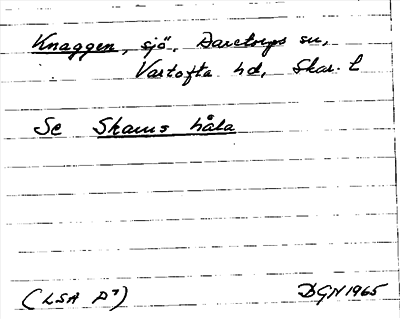 Knaggen, sjö, Daretorps sn,
Vartofta hd, Skar. l
Se Skams håla
(LSA D7)
DGN 1965